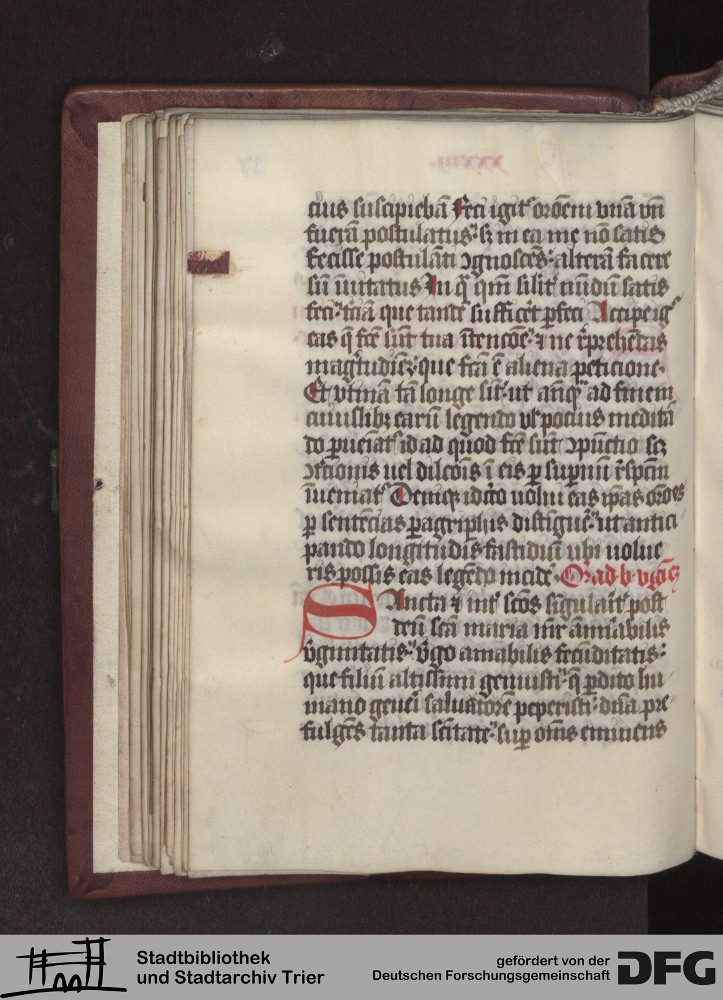 cius suscipiebā Feci igit᷑ orōem vnā vn̄
fuerā postulatus: sꝫ in ea me nō satis
fecisse postulati ꝯgnoscēs: alterā facere
sū īuitatus In q̄ qm̄ silit᷑ nūdū satis
feci: t̄ciā que tandē sufficēt ꝑfeci Accipe ig᷑
eas q̄ fc̄e sūt tua ītencōe: ⁊ ne r̄prehēdas
que fc̄a ē aliena peticione.
Et vtinā tā longe sit: ut an̄q᷑ ad finem
cuiuslibꝫ earū legendo ul᷑ pocius meditā
do ꝑueniat᷑ id ad quod fc̄e sūt ꝯpūctio scꝫ
ꝯtricionis uel dilcōis ī eis ꝑ supnū r̄spcm̄
īueniat᷑ Deniqꝫ idcīco uolui eas ip̄as orōes
ꝑ sentēcias ꝑagriphis distīgue: ut antici
pando longitudīs fastidiū ubi uolue
ris possis eas legēdo īncide Or̄ ad b vgīeꝫ
SAncta ⁊ int᷑ scōs sīgulāit᷑ post
deū scā maria mr̄ āmirabilis
v̄ginitatis: v̄go amabilis fecūditatis:
que filiū altissimi genuisti: q̄ ꝑdito hu
mano geneī saluatorē peperisti: dn̄a pre
fulgēs tanta scītate: suꝑ om̄s eminens
Stadtbibliothek
und Stadtarchiv Trier
gefördert von der
Deutschen Forschungsgemeinschaft
DFG